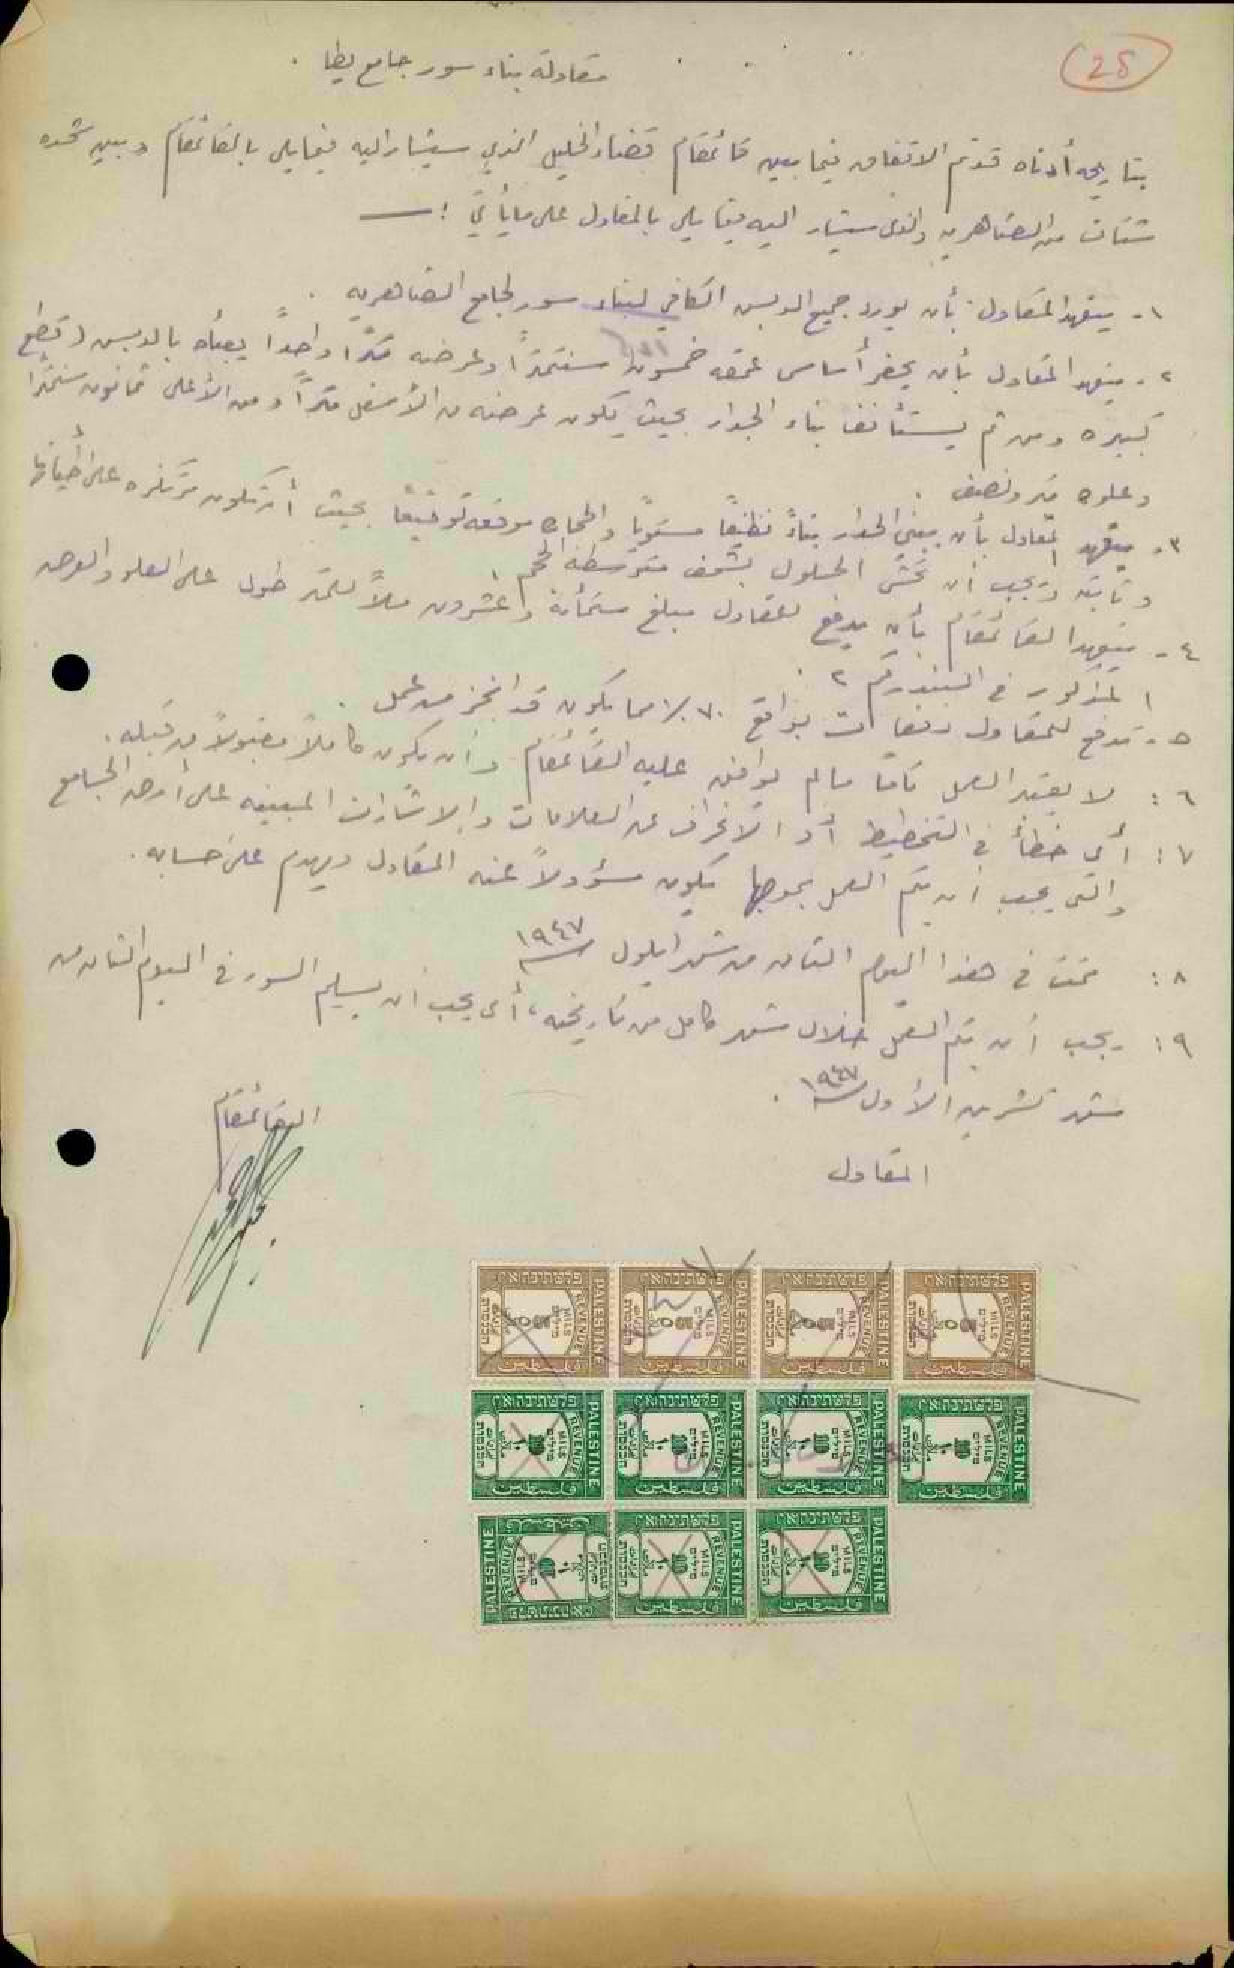 28
مقاولة بناء سور جامع يطا .
بتاريخه أدناه قد تم الاتفاق فيما بين قائمقام قضاء الخليل الذي سيشار اليه فيما يلي بالقائمقام وبين
من الضاهريه والذي سيشار اليه فيما يلي بالمقاول على ما يأتي :ــ
١- يتعهد المقاول بأن يورد جميع الدبس الكافي لبناء سور لجامع الضاهريه .
٢- يتعهد المقاول بأن يحفر أساس عمقه خمسون سنتمترًا وعرضه مترًا واحدًا يعبأه بالدبس (قطع
كبيره ومن ثم يستأنف بناء الجدار بحيث يكون عرضه من الأسفل مترًا ومن الأعلى ثمانون سنتمترًا
وعلوه متر ونصف .
٣- يتعهد المقاول بأن يبني الجدار بناءً نظيفًا مستويًا والحجاره موقعه توقيعًا بحيث أن تكون مرتكزه على
وثابته ويجب أن تحشى الحلول بشحف متوسطة الحجم .
٤- يتعهد القائمقام بأن يدفع للمقاول مبلغ ستمائة وعشرون ملاً للمتر طول على العلو والعرض
المذكور في البند رقم ٢ .
٥- تدفع للمقاول دفعات بواقع ٧٠٪ مما يكون قد انجز من عمل .
٦: لا يعتبر العمل تامًا مالم يوافق عليه القائمقام وأن يكون كاملاً مقبولاً من قبله .
٧: أي خطأ في التخطيط أو الانحراف عن العلامات والاشارات المبينه على أرض الجامع
والتي يجب أن يتم العمل بموجبها يكون مسؤولاً عنه المقاول ويهدم على حسابه .
٨: تمت في هذا اليوم الثامن من شهر ايلول سنة ١٩٤٧
٩: يجب أن يتم العمل خلال شهر كامل من تاريخه، أي يجب أن يسلم السور في اليوم الثامن من
شهر تشرين الأول سنة ١٩٤٧ .
القائمقام
المقاول
PALESTINE REVENUE 50 MILS فلسطين פלשתינה א״י
PALESTINE REVENUE 50 MILS فلسطين פלשתינה א״י
PALESTINE REVENUE 50 MILS فلسطين פלשתינה א״י
PALESTINE REVENUE 50 MILS فلسطين פלשתינה א״י
PALESTINE REVENUE 10 MILS فلسطين פלשתינה א״י
PALESTINE REVENUE 10 MILS فلسطين פלשתינה א״י
PALESTINE REVENUE 10 MILS فلسطين פלשתינה א״י
PALESTINE REVENUE 10 MILS فلسطين פלשתינה א״י
PALESTINE REVENUE 10 MILS فلسطين פלשתינה א״י
PALESTINE REVENUE 10 MILS فلسطين פלשתינה א״י
PALESTINE REVENUE 10 MILS فلسطين פלשתינה א״י